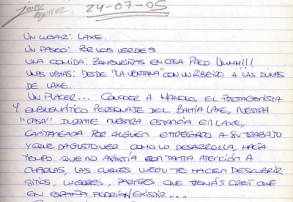 24-07-05
UN LUGAR: LAXE.
UN PASEO: POR LOS VERDES
UNA COMIDA: ZAMBURIÑAS EN CASA PACO UMMM!!!
UNAS VISTAS: DESDE "LA VENTANA" CON UN BESO A LAS DUNAS
DE LAXE.
UN PLACER... CONOCER A MANOLO, EL PROTAGONISTA
Y EMBLEMÁTICO PERSONAJE DEL BAHÍA LAXE, NUESTRA
"CASA" DURANTE NUESTRA ESTANCIA EN LAXE,
CAPITANEADA POR ALGUIEN ENTREGADO A SU TRABAJO
Y QUE DA GUSTO VER COMO LO DESARROLLA, HACÍA
TIEMPO QUE NO ASISTÍA CON TANTA ATENCIÓN A
CHARLAS, LAS CUALES TE HACEN DESCUBRIR
SITIOS, LUGARES, PARAJES QUE JAMÁS CREÍ QUE
EN ESPAÑA PODRÍAN EXISTIR...